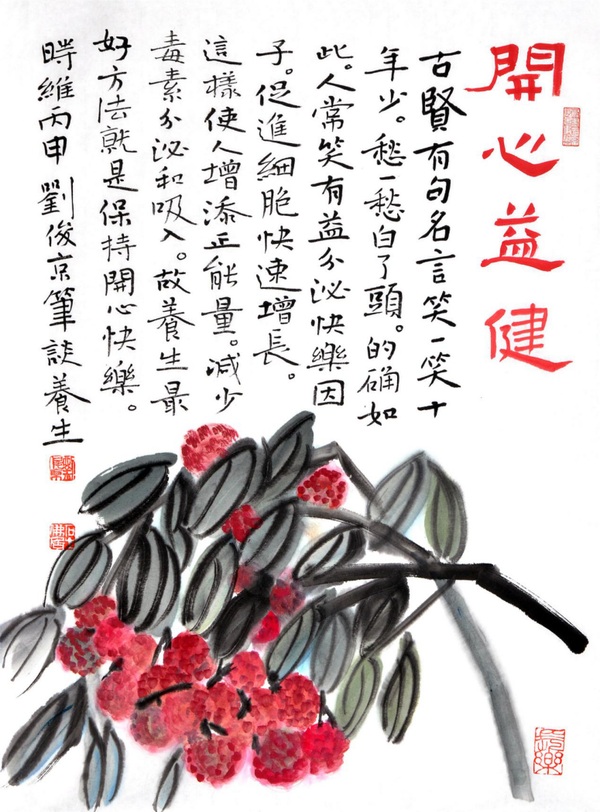 開心益健
古賢有句名言笑一笑十
年少。愁一愁白了頭。的確如
此。人常笑有益分泌快樂因
子。促進細胞快速增長。
這樣使人增添正能量。減少
毒素分泌和吸入。故養生最
好方法就是保持開心快樂。
時維丙申 劉俊京筆談養生
長樂